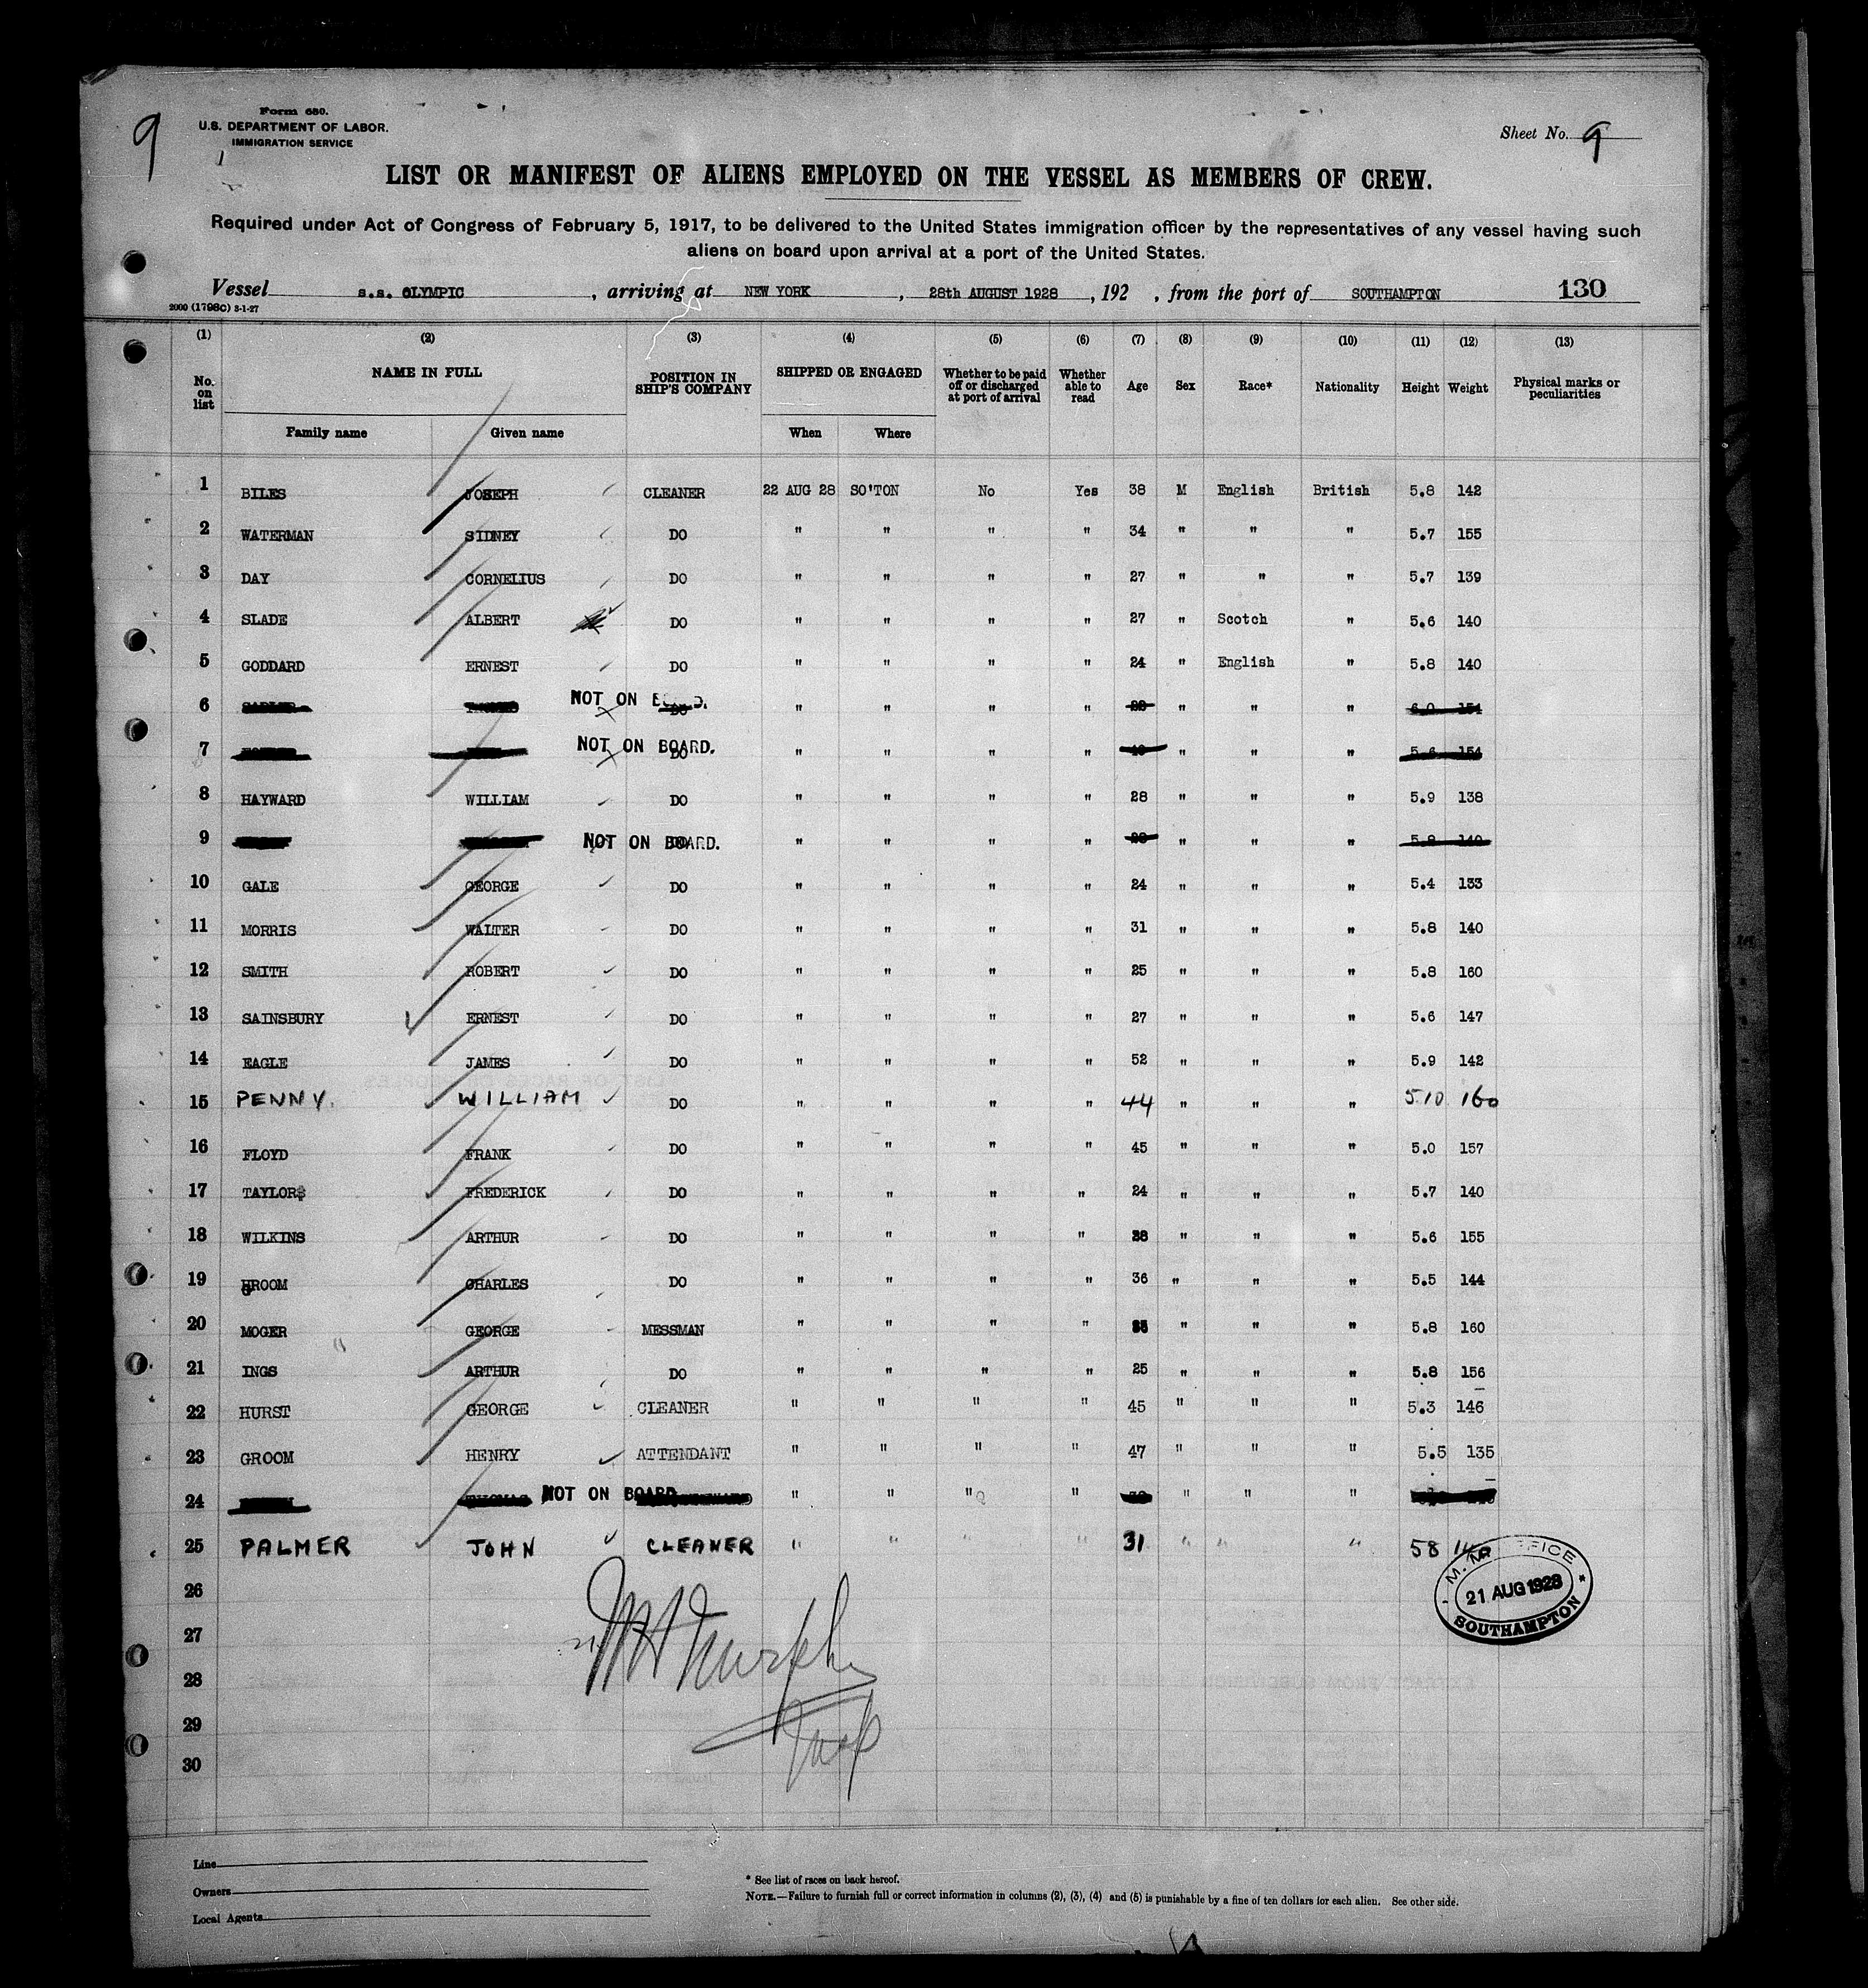 9
Form 680.
U.S. DEPARTMENT OF LABOR.
IMMIGRATION SERVICE
Sheet No. 9
LIST OR MANIFEST OF ALIENS EMPLOYED ON THE VESSEL AS MEMBERS OF CREW.
Required under Act of Congress of February 5, 1917, to be delivered to the United States immigration officer by the representatives of any vessel having such
aliens on board upon arrival at a port of the United States.
Vessel s.s. OLYMPIC, arriving at NEW YORK, 28th AUGUST 1928, 192 , from the port of SOUTHAMPTON 130
2000 (1798C) 3-1-27
(1) (2) (3) (4) (5) (6) (7) (8) (9) (10) (11) (12) (13)
No. on list NAME IN FULL POSITION IN SHIP'S COMPANY SHIPPED OR ENGAGED Whether to be paid off or discharged at port of arrival Whether able to read Age Sex Race* Nationality Height Weight Physical marks or peculiarities
Family name Given name When Where
1 BILES JOSEPH CLEANER 22 AUG 28 SO'TON No Yes 38 M English British 5.8 142
2 WATERMAN SIDNEY DO " " " " 34 " " " 5.7 155
3 DAY CORNELIUS DO " " " " 27 " " " 5.7 139
4 SLADE ALBERT DO " " " " 27 " Scotch " 5.6 140
5 GODDARD ERNEST DO " " " " 24 " English " 5.8 140
6 NOT ON BOARD. DO " " " " " " " 6.0 154
7 NOT ON BOARD. DO " " " " " " " 5.6 154
8 HAYWARD WILLIAM DO " " " " 28 " " " 5.9 138
9 NOT ON BOARD. " " " " " " " 140
10 GALE GEORGE DO " " " " 24 " " " 5.4 133
11 MORRIS WALTER DO " " " " 31 " " " 5.8 140
12 SMITH ROBERT DO " " " " 25 " " " 5.8 160
13 SAINSBURY ERNEST DO " " " " 27 " " " 5.6 147
14 EAGLE JAMES DO " " " " 52 " " " 5.9 142
15 PENNY. WILLIAM DO " " " " 44 " " " 5.10 160
16 FLOYD FRANK DO " " " " 45 " " " 5.0 157
17 TAYLOR FREDERICK DO " " " " 24 " " " 5.7 140
18 WILKINS ARTHUR DO " " " " 28 " " " 5.6 155
19 GROOM CHARLES DO " " " " 36 " " " 5.5 144
20 MOGER GEORGE MESSMAN " " " " " " " 5.8 160
21 INGS ARTHUR DO " " " " 25 " " " 5.8 156
22 HURST GEORGE CLEANER " " " " 45 " " " 5.3 146
23 GROOM HENRY ATTENDANT " " " " 47 " " " 5.5 135
24 THOMAS NOT ON BOARD " " " " " " "
25 PALMER JOHN CLEANER " " " " 31 " " " 58
26
27
28
29
30
M Murphy
OFFICE
21 AUG 1928
SOUTHAMPTON
Line
Owners
Local Agents
* See list of races on back hereof.
NOTE.—Failure to furnish full or correct information in columns (2), (3), (4) and (5) is punishable by a fine of ten dollars for each alien. See other side.